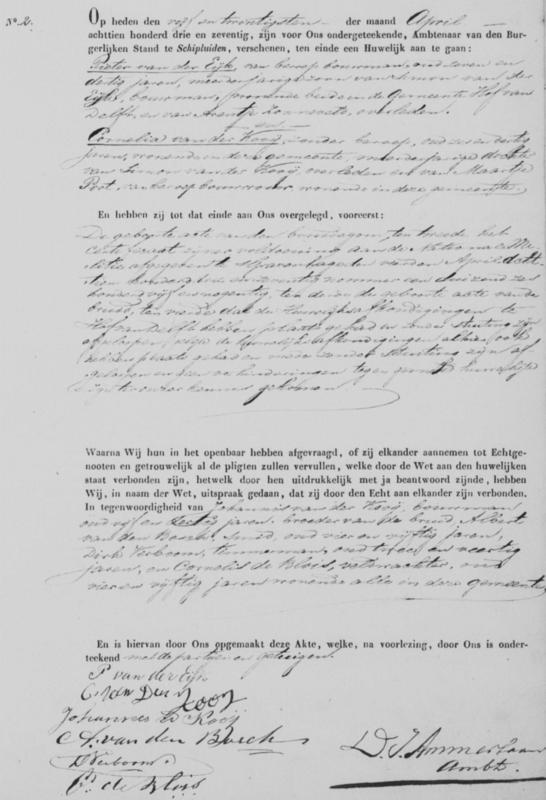 Nº 2.
Op heden den vijf en twintigsten der maand April
achttien honderd drie en zeventig, zijn voor Ons ondergeteekende, Ambtenaar van den Bur-
gerlijken Stand te Schipluiden, verschenen, ten einde een Huwelijk aan te gaan:
Pieter van der Eijk, van beroep bouwman, oud zeven en
dertig jaren, meerderjarige zoon van Simon van der
Eijk, bouwman, wonende beide in de Gemeente Hof van
Delft, en van overleden.
en
Cornelia van der Kooij, zonder beroep, oud en dertig
jaren, wonende in deze gemeente, meerderjarige dochter
van Simon van der Kooij, overleden en van Maartje
Poot, van beroep bouwvrouw, wonende in deze gemeente.
En hebben zij tot dat einde aan Ons overgelegd, vooreerst:
De geboorteakte van den bruidegom, ten tweede het
certificaat zijner voldoening aan de Nationale Mi-
litie afgegeven te 's Gravenhage den April acht-
tien honderd drie en zeventig nommer een duizend zes
honderd vijf en negentig, ten derde de geboorte akte van de
bruid, ten vierde dat de Huwelijks afkondigingen te
Hof van Delft hebben plaats gehad en zonder stuiting zijn
afgeloopen, de Huwelijks afkondigingen alhier ook
hebben plaats gehad en mede zonder stuiting zijn af-
geloopen en geen verhinderingen tegen huwelijk
zijn ter onzer kennis gekomen.
Waarna Wij hun in het openbaar hebben afgevraagd, of zij elkander aannemen tot Echtge-
nooten en getrouwelijk al de pligten zullen vervullen, welke door de Wet aan den huwelijken
staat verbonden zijn, hetwelk door hen uitdrukkelijk met ja beantwoord zijnde, hebben
Wij, in naam der Wet, uitspraak gedaan, dat zij door den Echt aan elkander zijn verbonden.
In tegenwoordigheid van Johannes van der Kooij, bouwman
oud vijf en dertig jaren, broeder van de bruid, Albert
van den Bosch, smid, oud vier en vijftig jaren,
Dirk Verboom, timmerman, oud twee en veertig
jaren, en Cornelis de Blois, veldwachter, oud
vier en vijftig jaren wonende alle in deze gemeente
En is hiervan door Ons opgemaakt deze Akte, welke, na voorlezing, door Ons is onder-
teekend met de partijen en getuigen.
P van der Eijk
C van der Kooij
Johannes vd Kooij
A. van den Bosch
D Verboom
C. de Blois
D. J. Ammerlaan
Ambt.